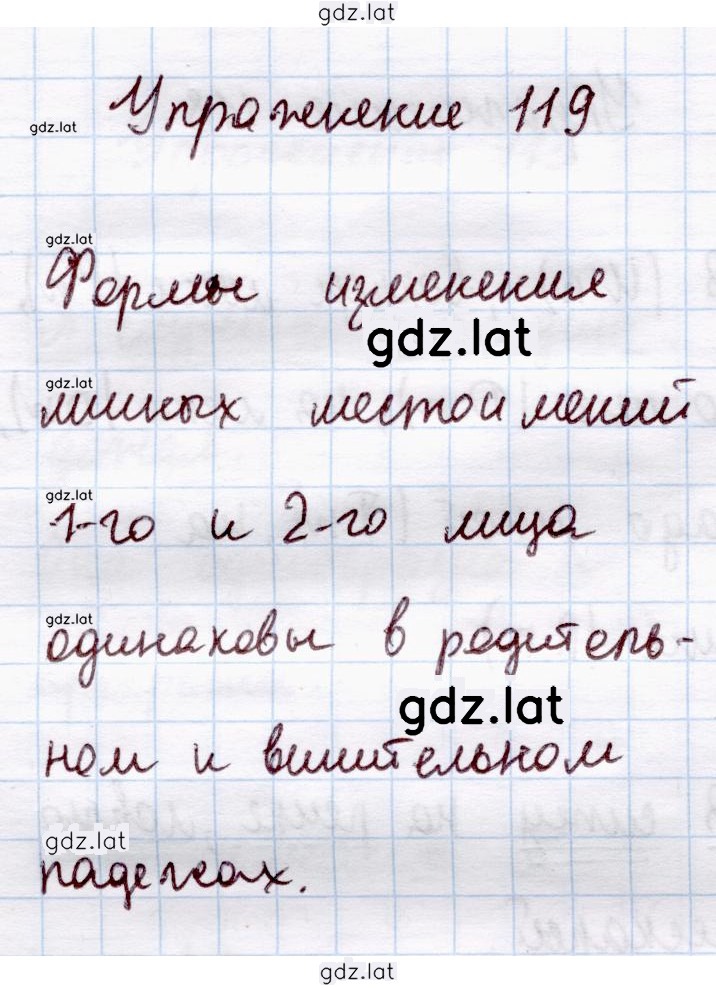 gdz.lat
Упражнение 119
gdz.lat
gdz.lat
Формы изменения
gdz.lat
gdz.lat
личных местоимений
gdz.lat
1-го и 2-го лица
gdz.lat
одинаковы в родитель-
gdz.lat
ном и винительном
gdz.lat
падежах.
gdz.lat